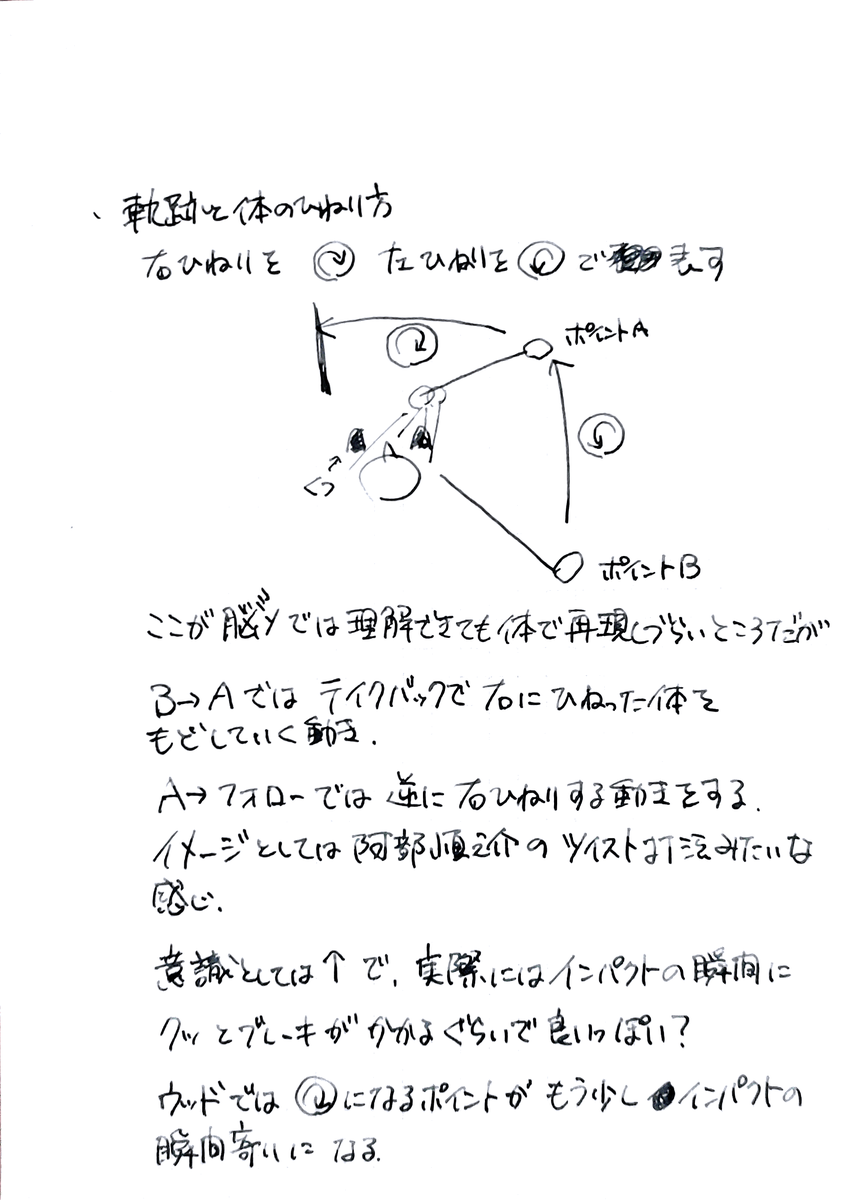 、軌跡と体のひねり方
右ひねりを 左ひねりを で 表す
ポイントA
くつ
ポイントB
ここが脳ミソでは理解できても体で再現しづらいところだが
B→Aではテイクバックで右にひねった体を
もどしていく動き.
A→フォローでは逆に右ひねりする動きをする.
イメージとしては阿部慎之介のツイスト打法みたいな
感じ.
意識としては↑で、実際にはインパクトの瞬間に
グッとブレーキがかかるぐらいで良いっぽい?
ウッドでは になるポイントがもう少しインパクトの
瞬間寄りになる.